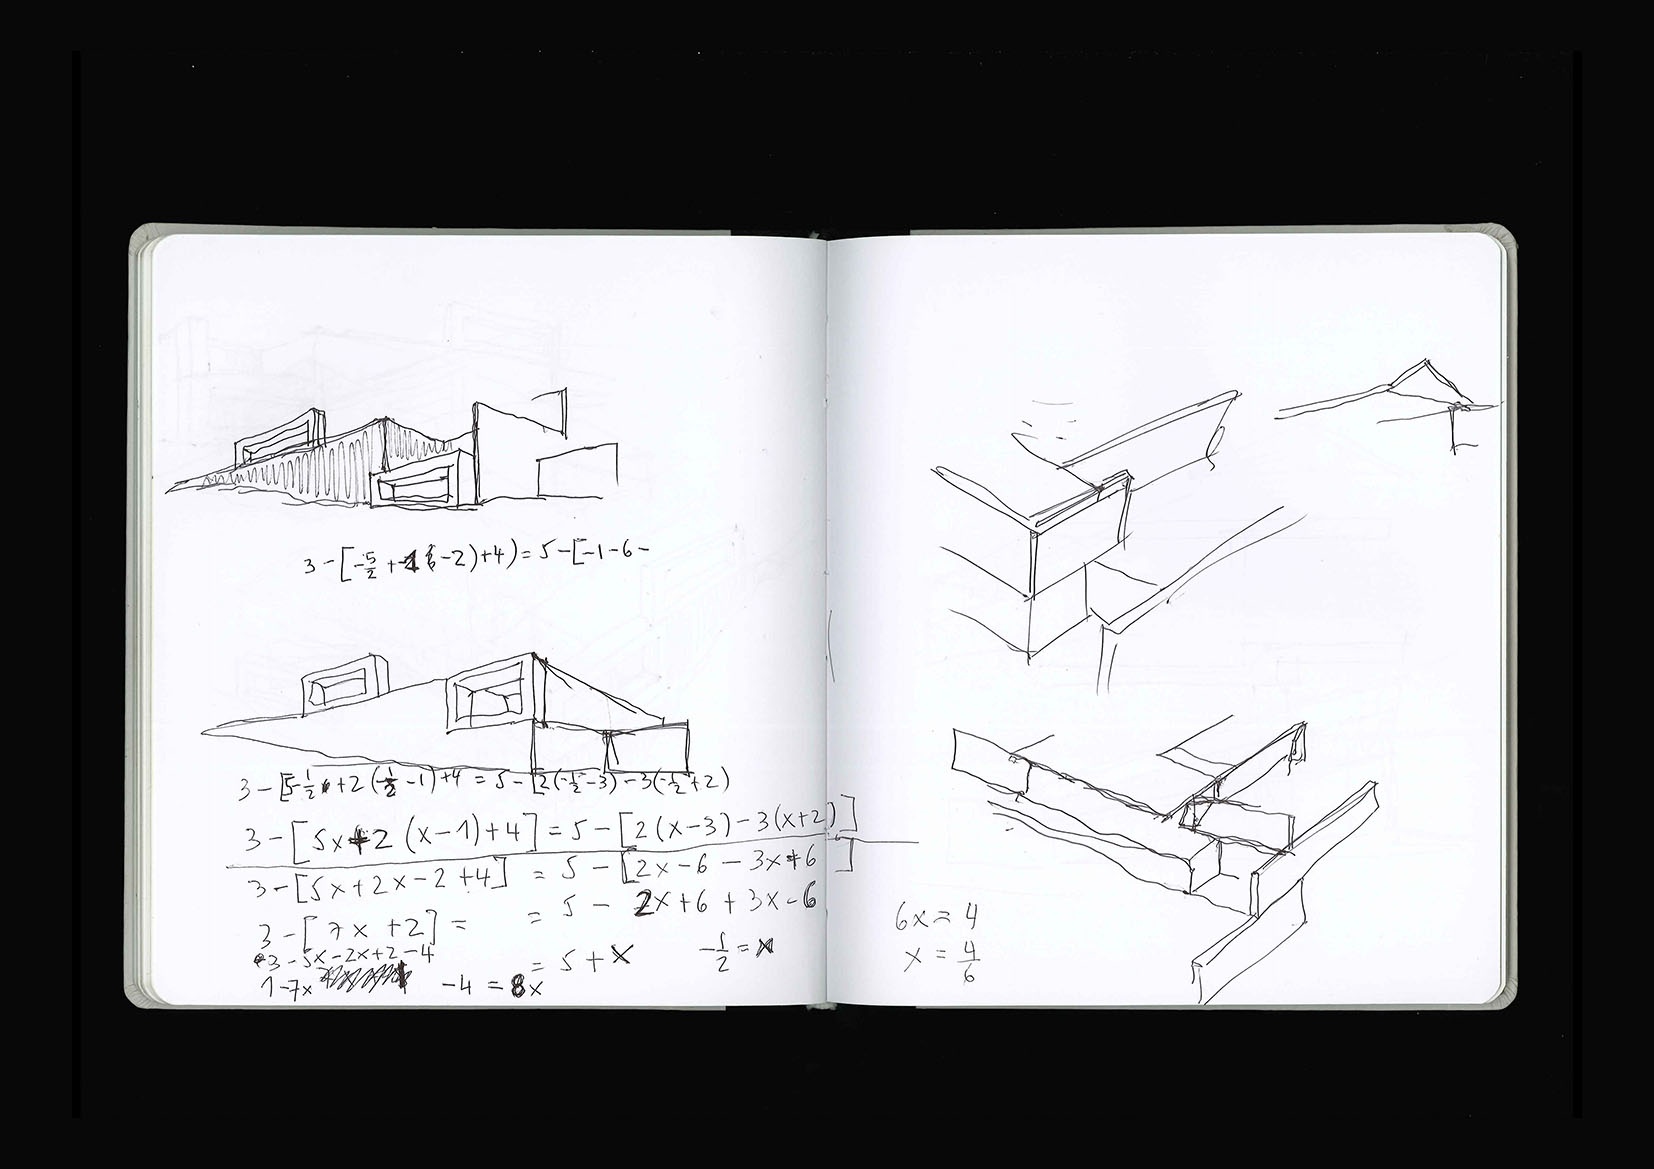 3-[-5/2+ -2)+4)=5-[-1-6-
3-[5-1/2+2(-1/2-1)+4=5-[2(-1/2-3)-3(-1/2+2)
3-[5x+2(x-1)+4]=5-[2(x-3)-3(x+2)]
3-[5x+2x-2+4] = 5-[2x-6-3x+6]
3-[7x+2]= = 5-2x+6+3x-6
3-5x-2x+2-4 = 5+x -1/2=x
1-7x -4=8x
6x=4
x=4/6